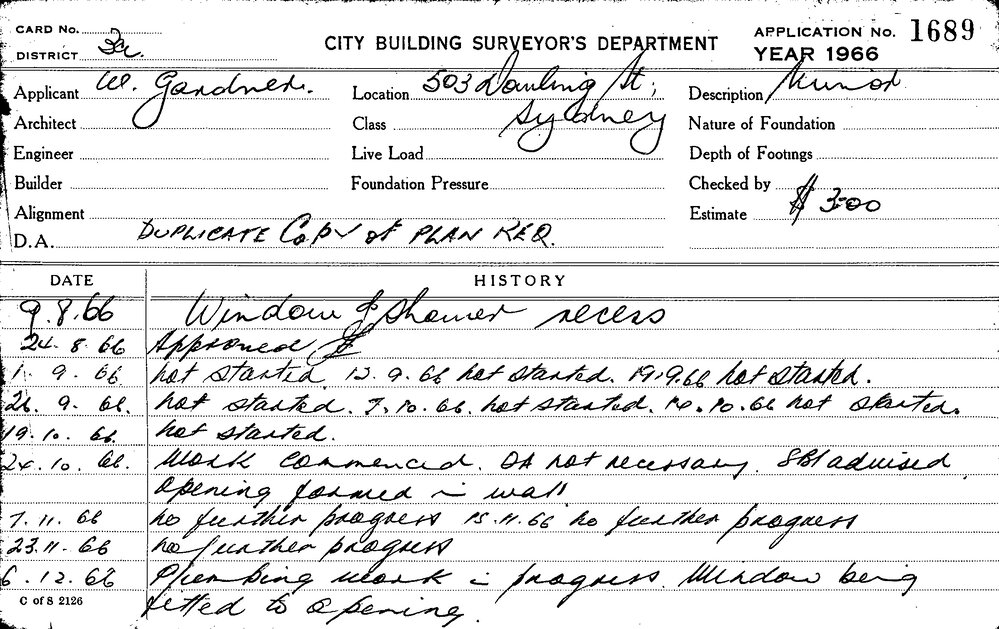 CARD No.
DISTRICT 2a
CITY BUILDING SURVEYOR'S DEPARTMENT
APPLICATION No. 1689
YEAR 1966
Applicant W. Gardner. Location 503 Dowling St; Description Minor
Architect Class Sydney Nature of Foundation
Engineer Live Load Depth of Footings
Builder Foundation Pressure Checked by
Alignment Estimate $ 300
D.A. DUPLICATE COPY of PLAN REQ.
DATE HISTORY
9.8.66 Window & Shower recess
24.8.66 Approved
1.9.66 not started. 12.9.66 not started. 19.9.66 not started.
26.9.66. not started. 7.10.66. not started. 14.10.66 not started.
19.10.66. not started.
24.10.66. Work commenced. DA not necessary. SBI advised
opening formed in wall
7.11.66 no further progress 15.11.66 no further progress
23.11.66 no further progress
6.12.66 Plumbing work in progress. Window being
fitted to opening.
C of S 2126